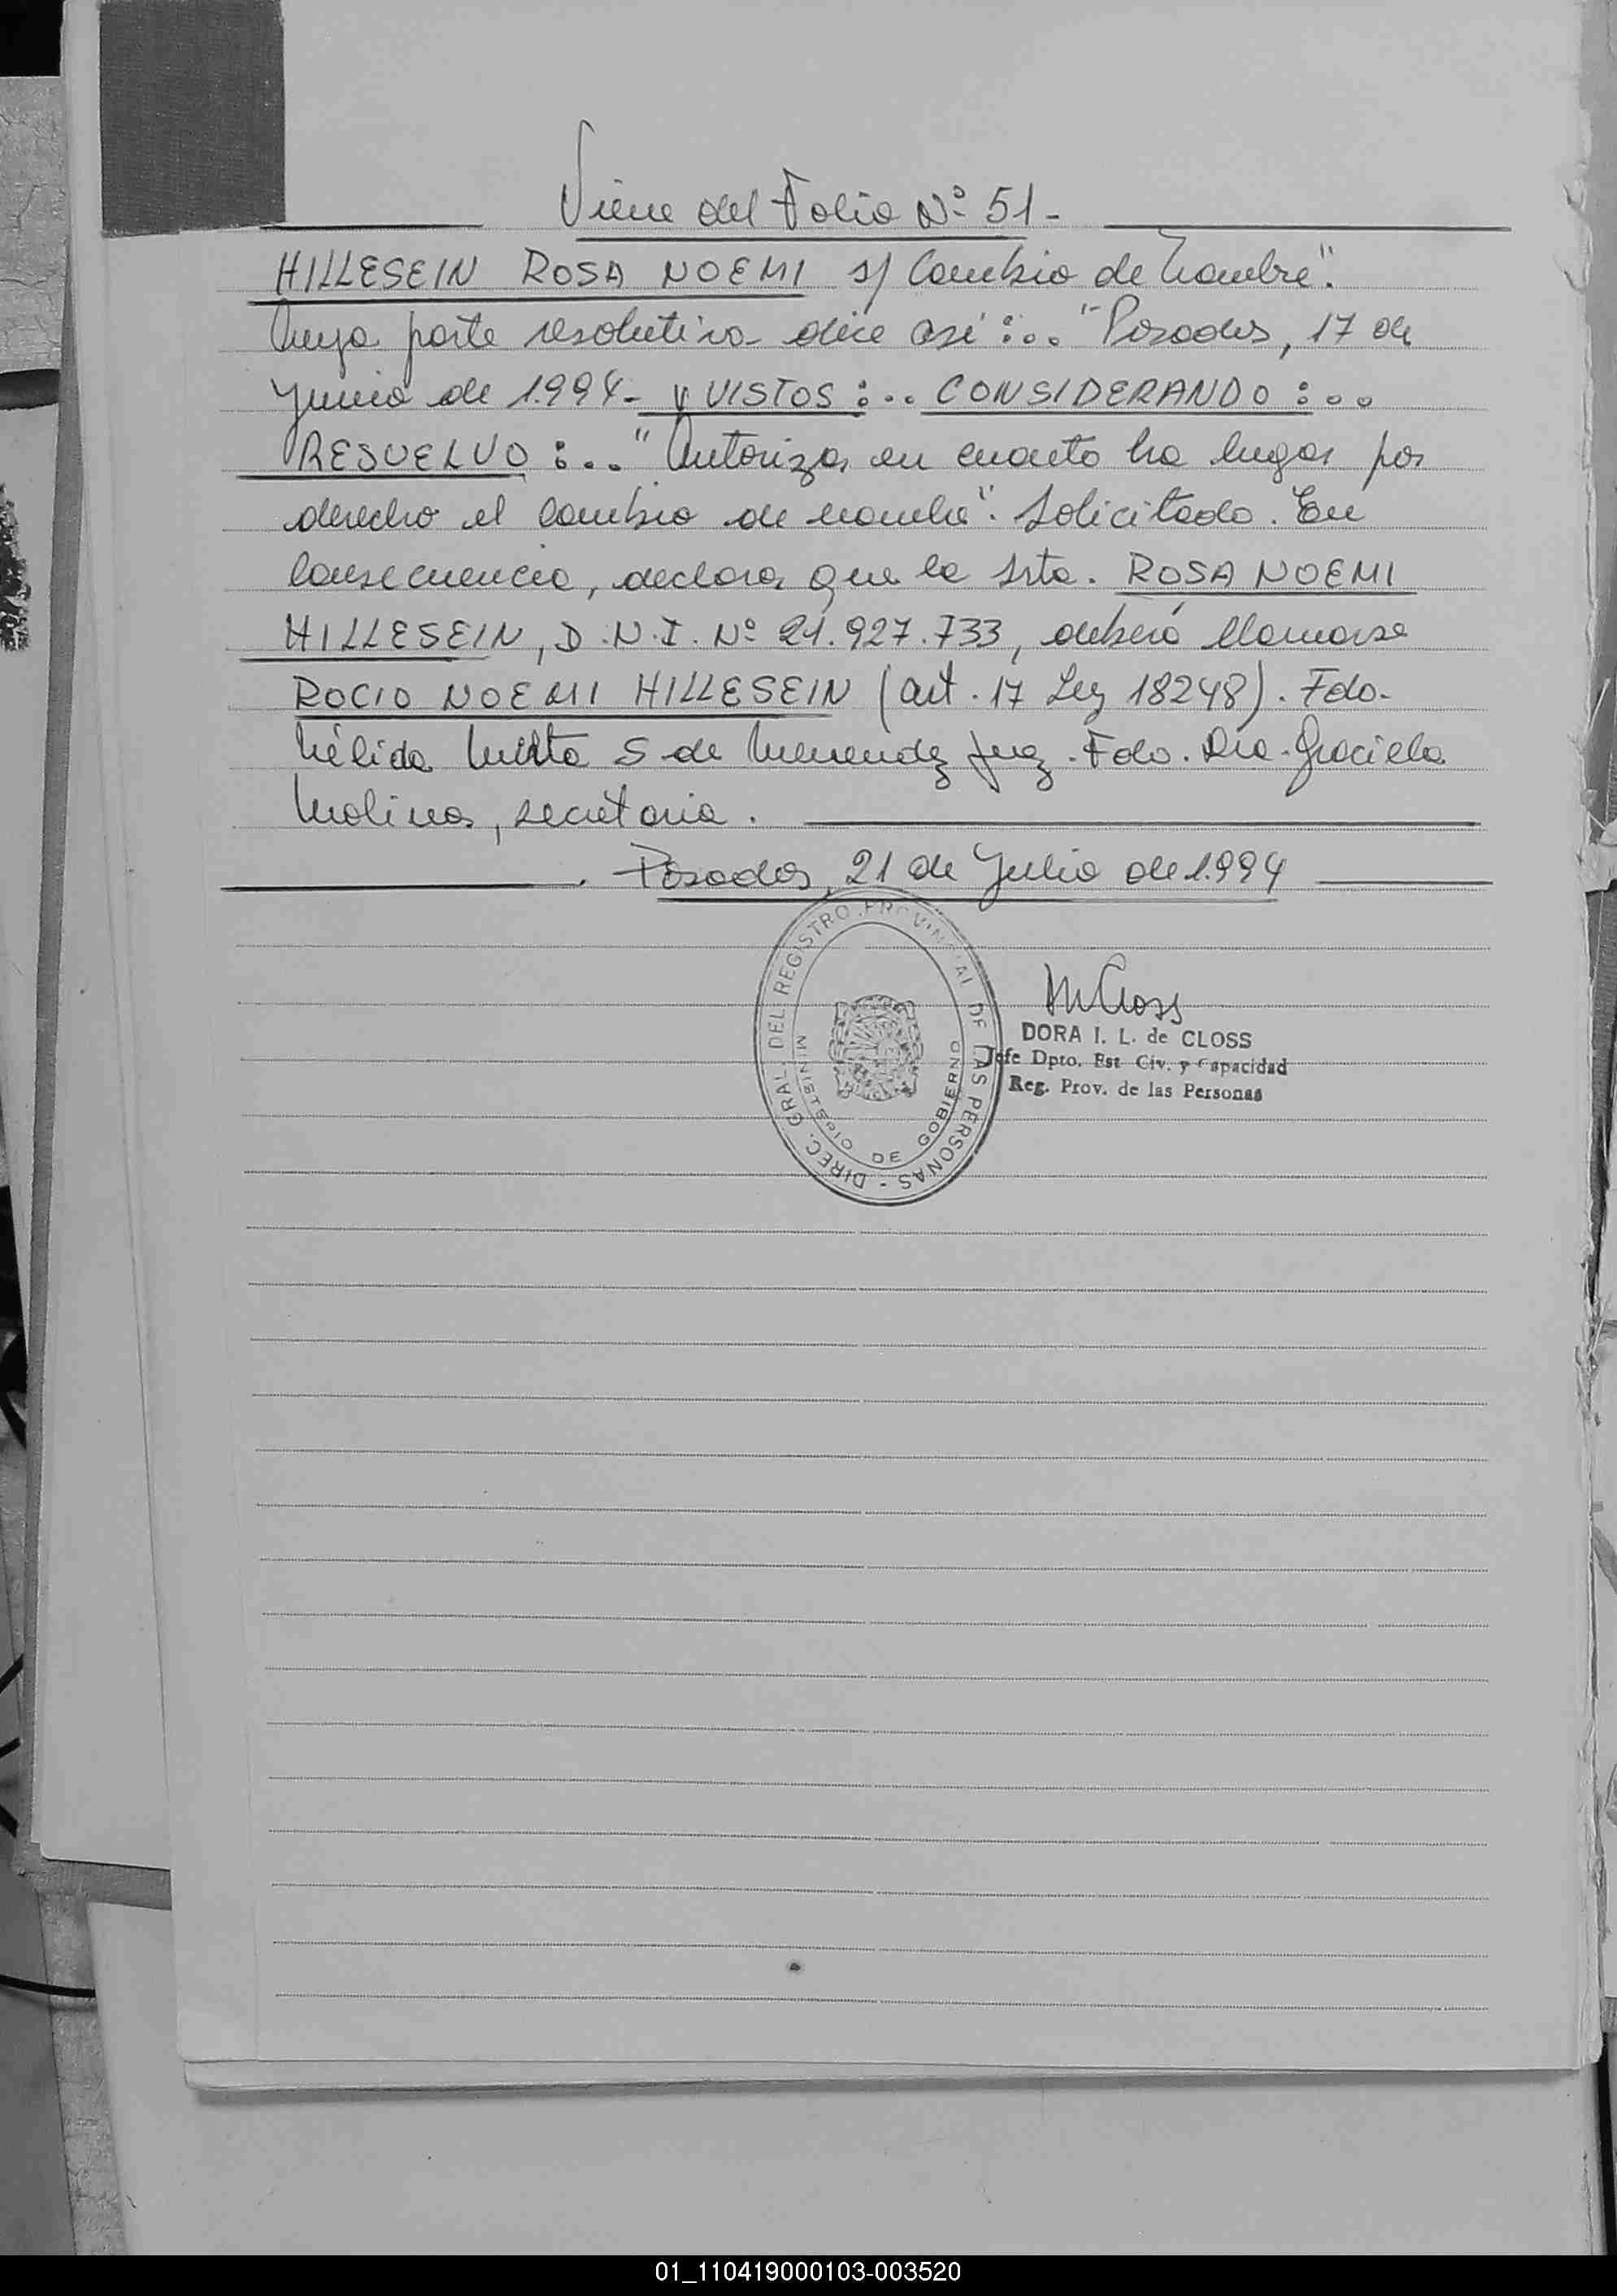 Viene del Folio Nº 51-
HILLESEIN ROSA NOEMI s/ Cambio de nombre".
Cuya parte resolutiva dice asi:.. "Posadas, 17 de
Junio de 1.994- y VISTOS:.. CONSIDERANDO:...
RESUELVO:.. "Autorizar en cuanto ha lugar por
derecho el cambio de nombre". Solicitado. En
consecuencia, declarar que la Srta. ROSA NOEMI
HILLESEIN, D.N.I. Nº 21.927.733, deberá llamarse
ROCIO NOEMI HILLESEIN (art. 17 Ley 18248). Fdo.
Nélida Mirta S de Menendez Juez. Fdo. Dra. Graciela
Molinas, secretaria.
Posadas, 21 de Julio de 1.994
DIREC. GRAL. DEL REGISTRO PROVINCIAL DE LAS PERSONAS -
MINISTERIO DE GOBIERNO
DORA I. L. de CLOSS
Jefe Dpto. Est Civ. y Capacidad
Reg. Prov. de las Personas
01_110419000103-003520